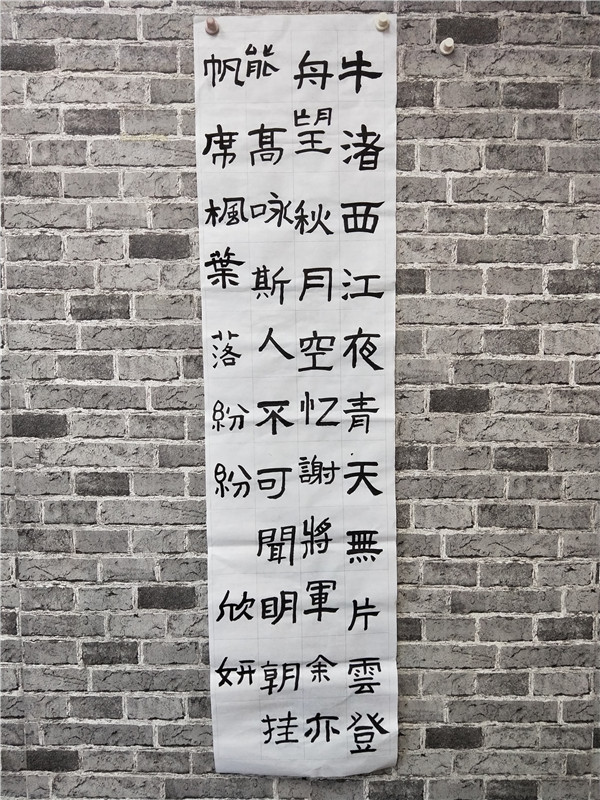 牛渚西江夜青天無片雲登
舟望秋月空忆謝將軍余亦
能高咏斯人不可聞明朝挂
帆席楓葉落紛紛欣妍